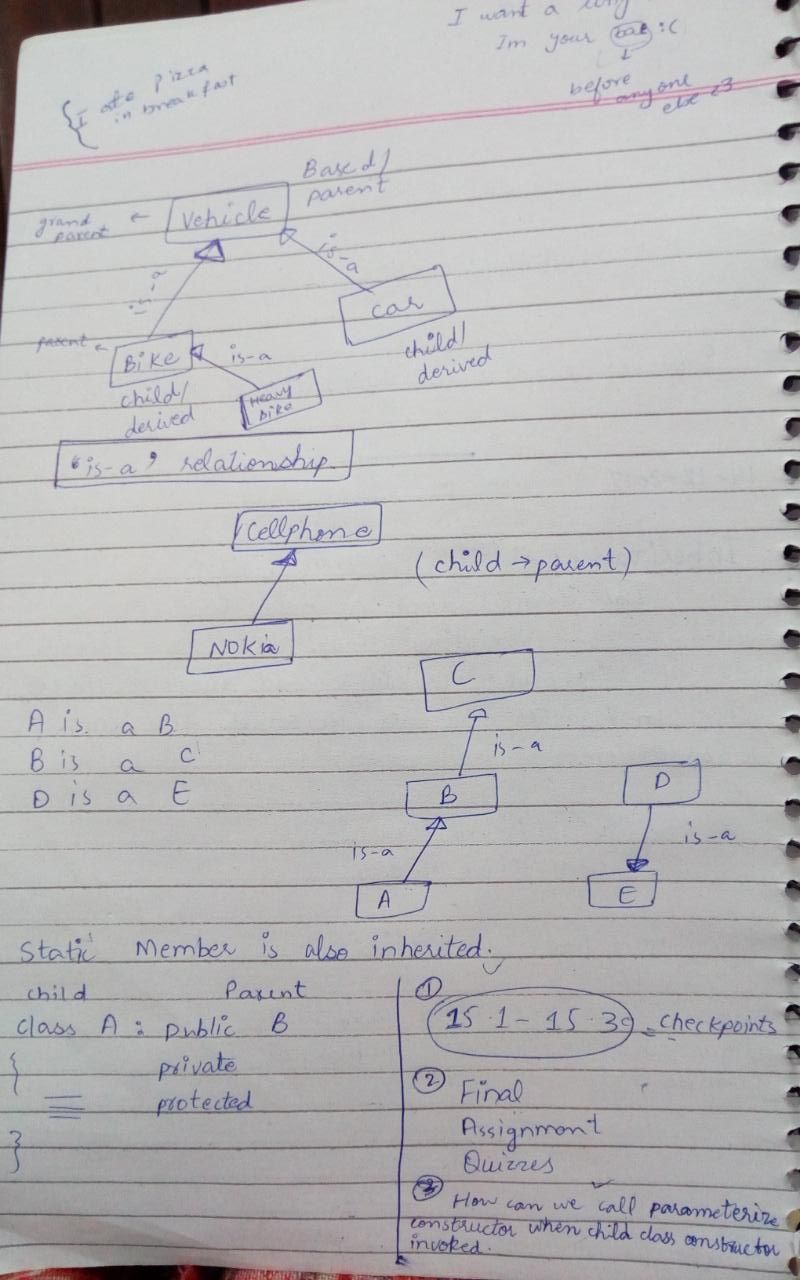 I want a
Im your bae :(
before
anyone
else <3
{ I ate pizza
in breakfast
Based/
parent
grand
parent ←
Vehicle
is-a
is-a
car
child/
derived
parent ←
Bike
is-a
child/
derived
Heavy
Bike
"is-a" relationship
Cellphone
(child → parent)
Nokia
C
A is a B
B is a C
D is a E
is-a
B
D
is-a
is-a
A
E
Static Member is also inherited.
child Parent
class A : public B
{ private
protected
}
①
15.1 - 15.3 checkpoints
② Final
Assignment
Quizzes
③ How can we call parameterize
constructor when child class constructor
invoked.